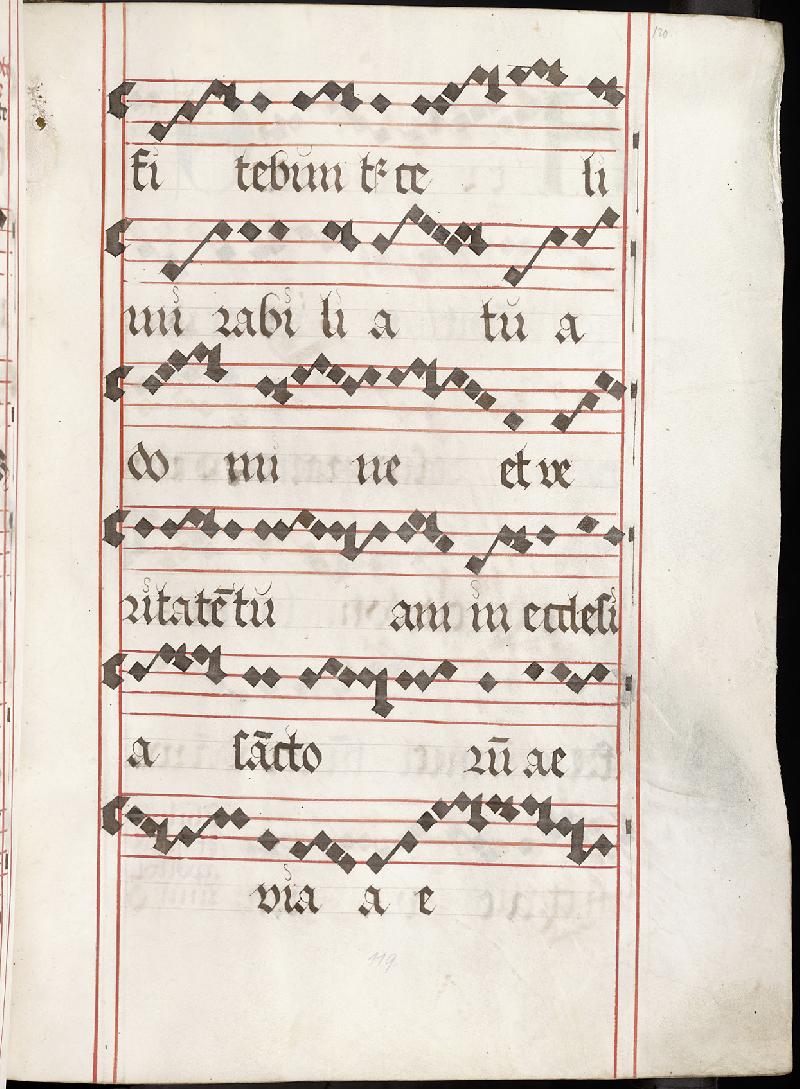 120
fi tebuntꝛ ce li
mi rabi li a tu a
do mi ne et ve
ritatē tu am in ecclesi
a sācto rū ae
via a e
119